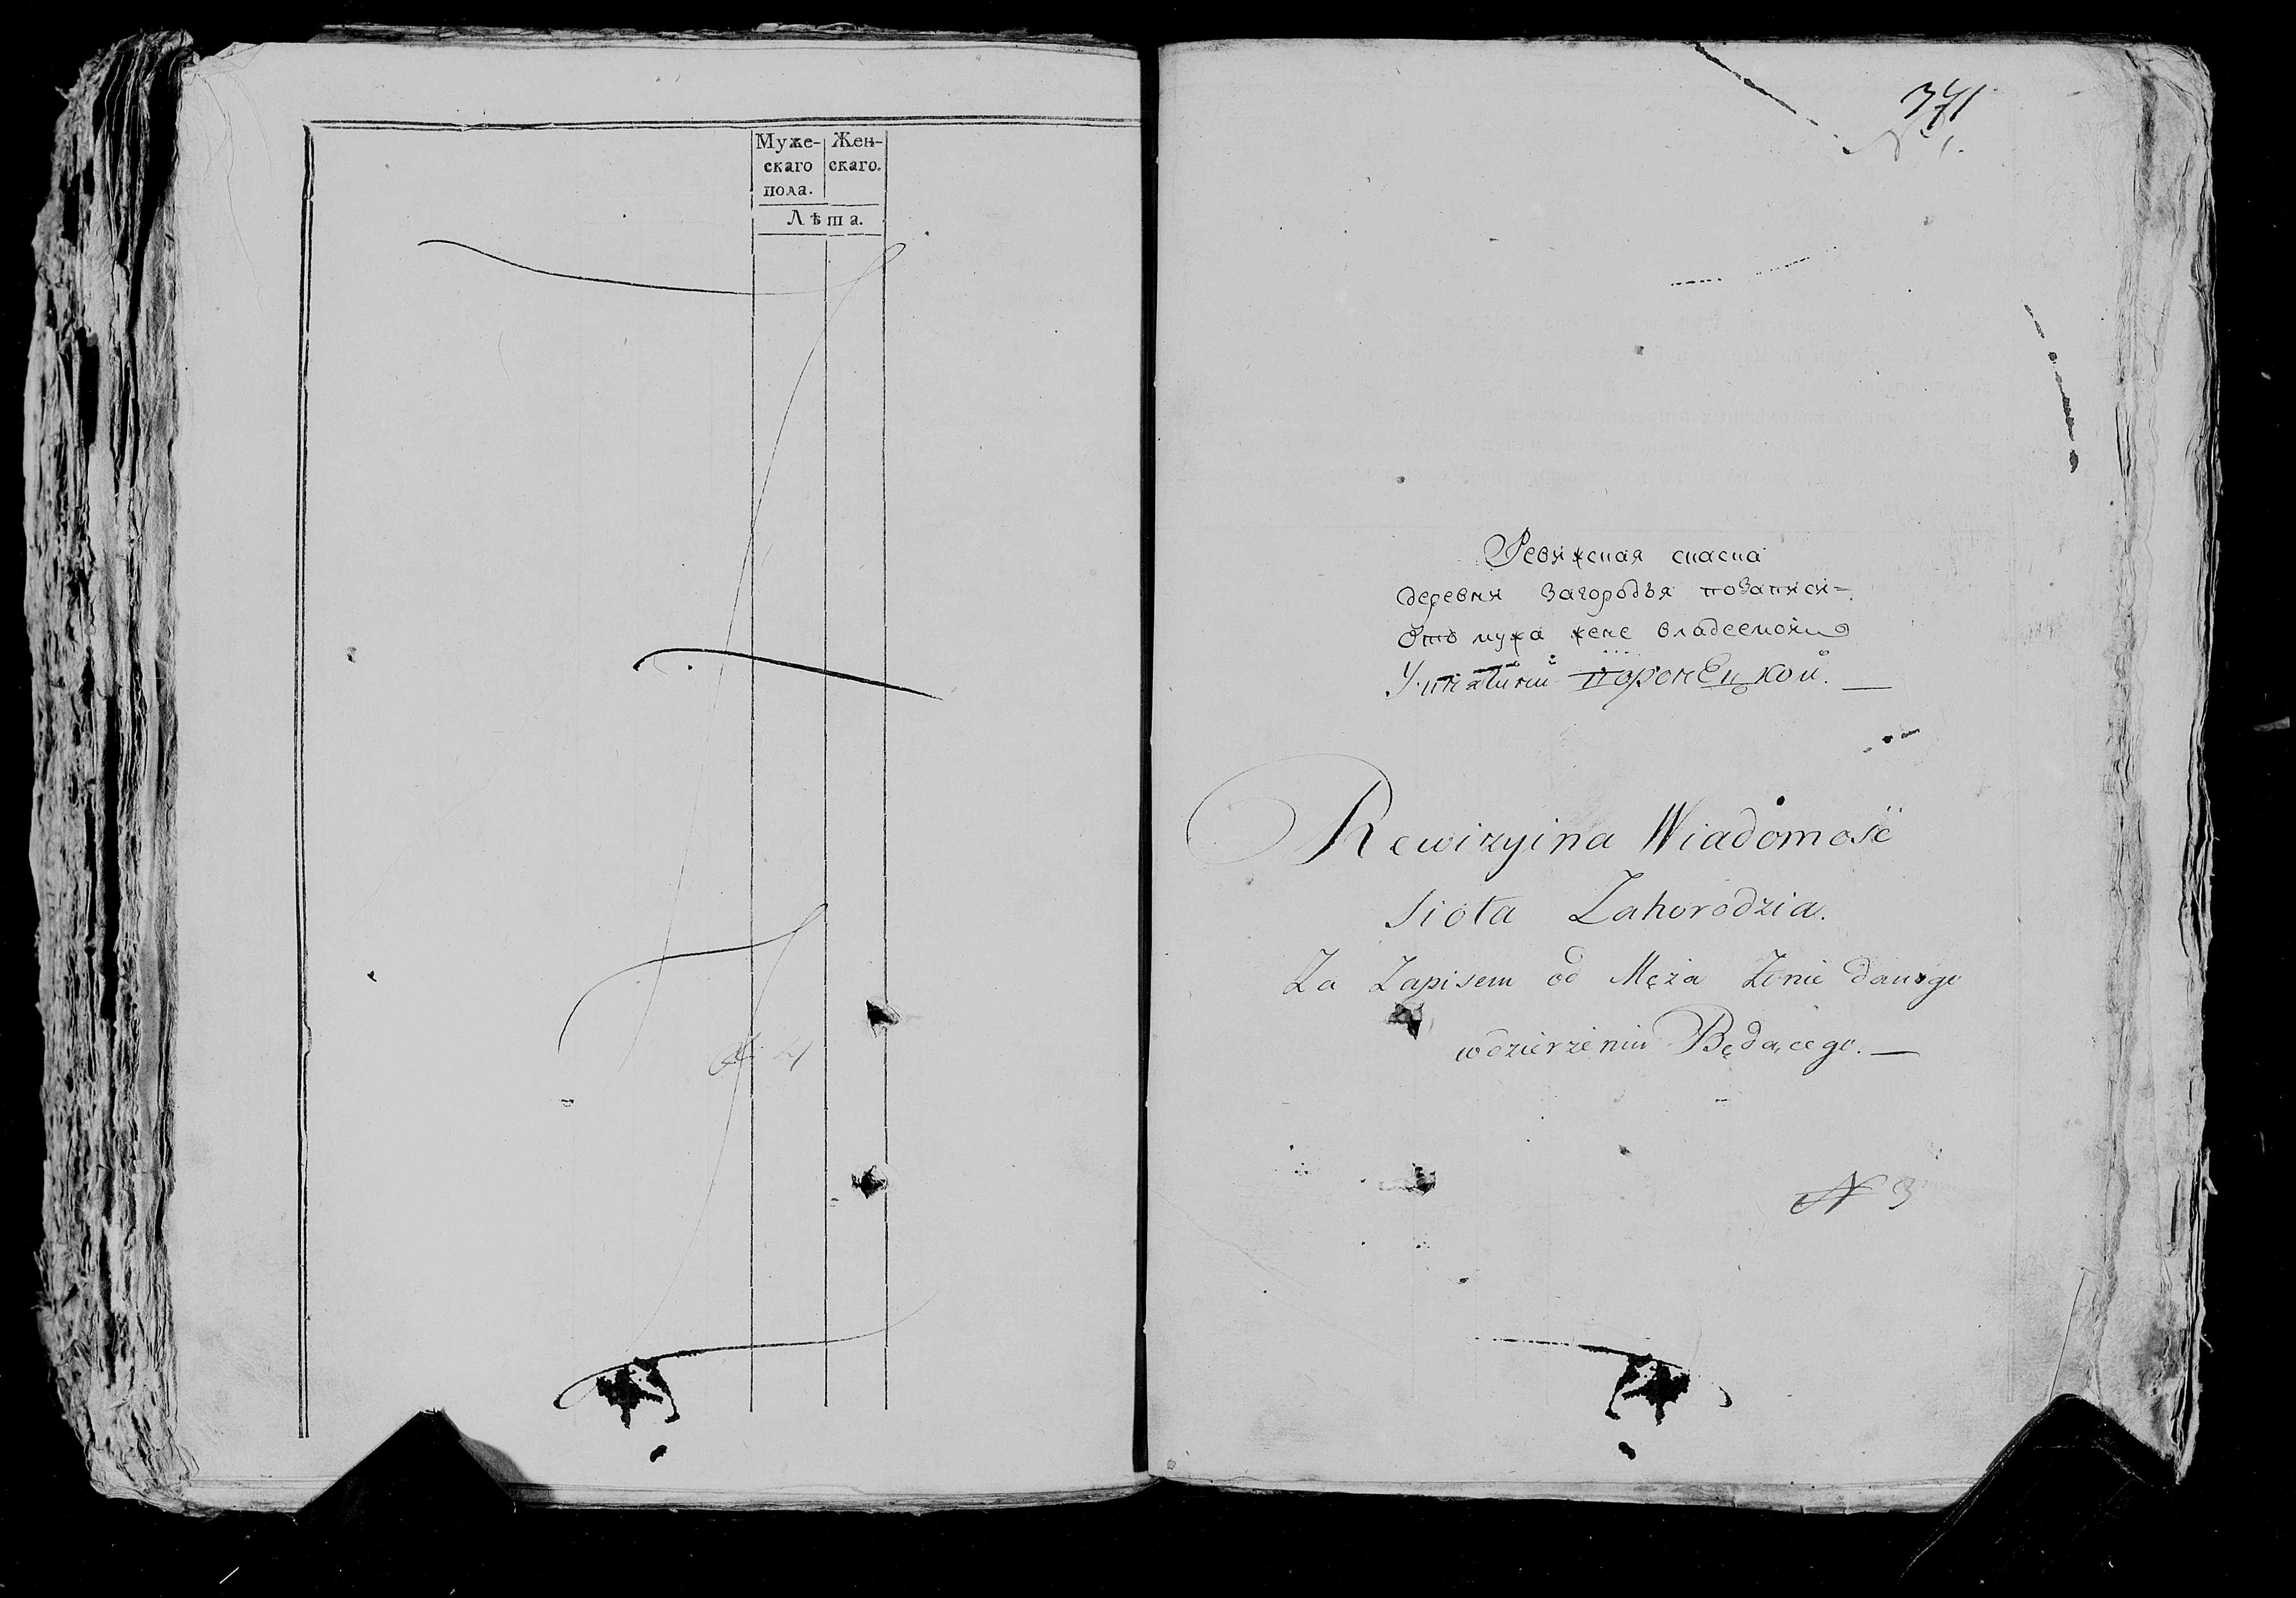 Муже- Жен-
скаго скаго.
пола.
Лѣта.
371
Ревижская сказка
деревни Загородья по Записи
Отъ мужа жене владеемой
Поронецкой.
Rewizyina Wiadomość
Sioła Zahorodzia.
Za Zapisem od Męża Żonie danego
w dzierżeniu Będącego.
N 3